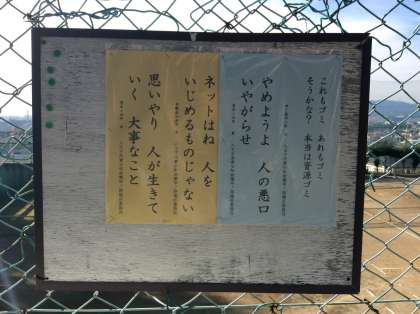 これもゴミ　あれもゴミ
そうかな？　本当は資源ゴミ
やめようよ　人の悪口
いやがらせ
ネットはね　人を
いじめるものじゃない
思いやり　人が生きて
いく　大事なこと